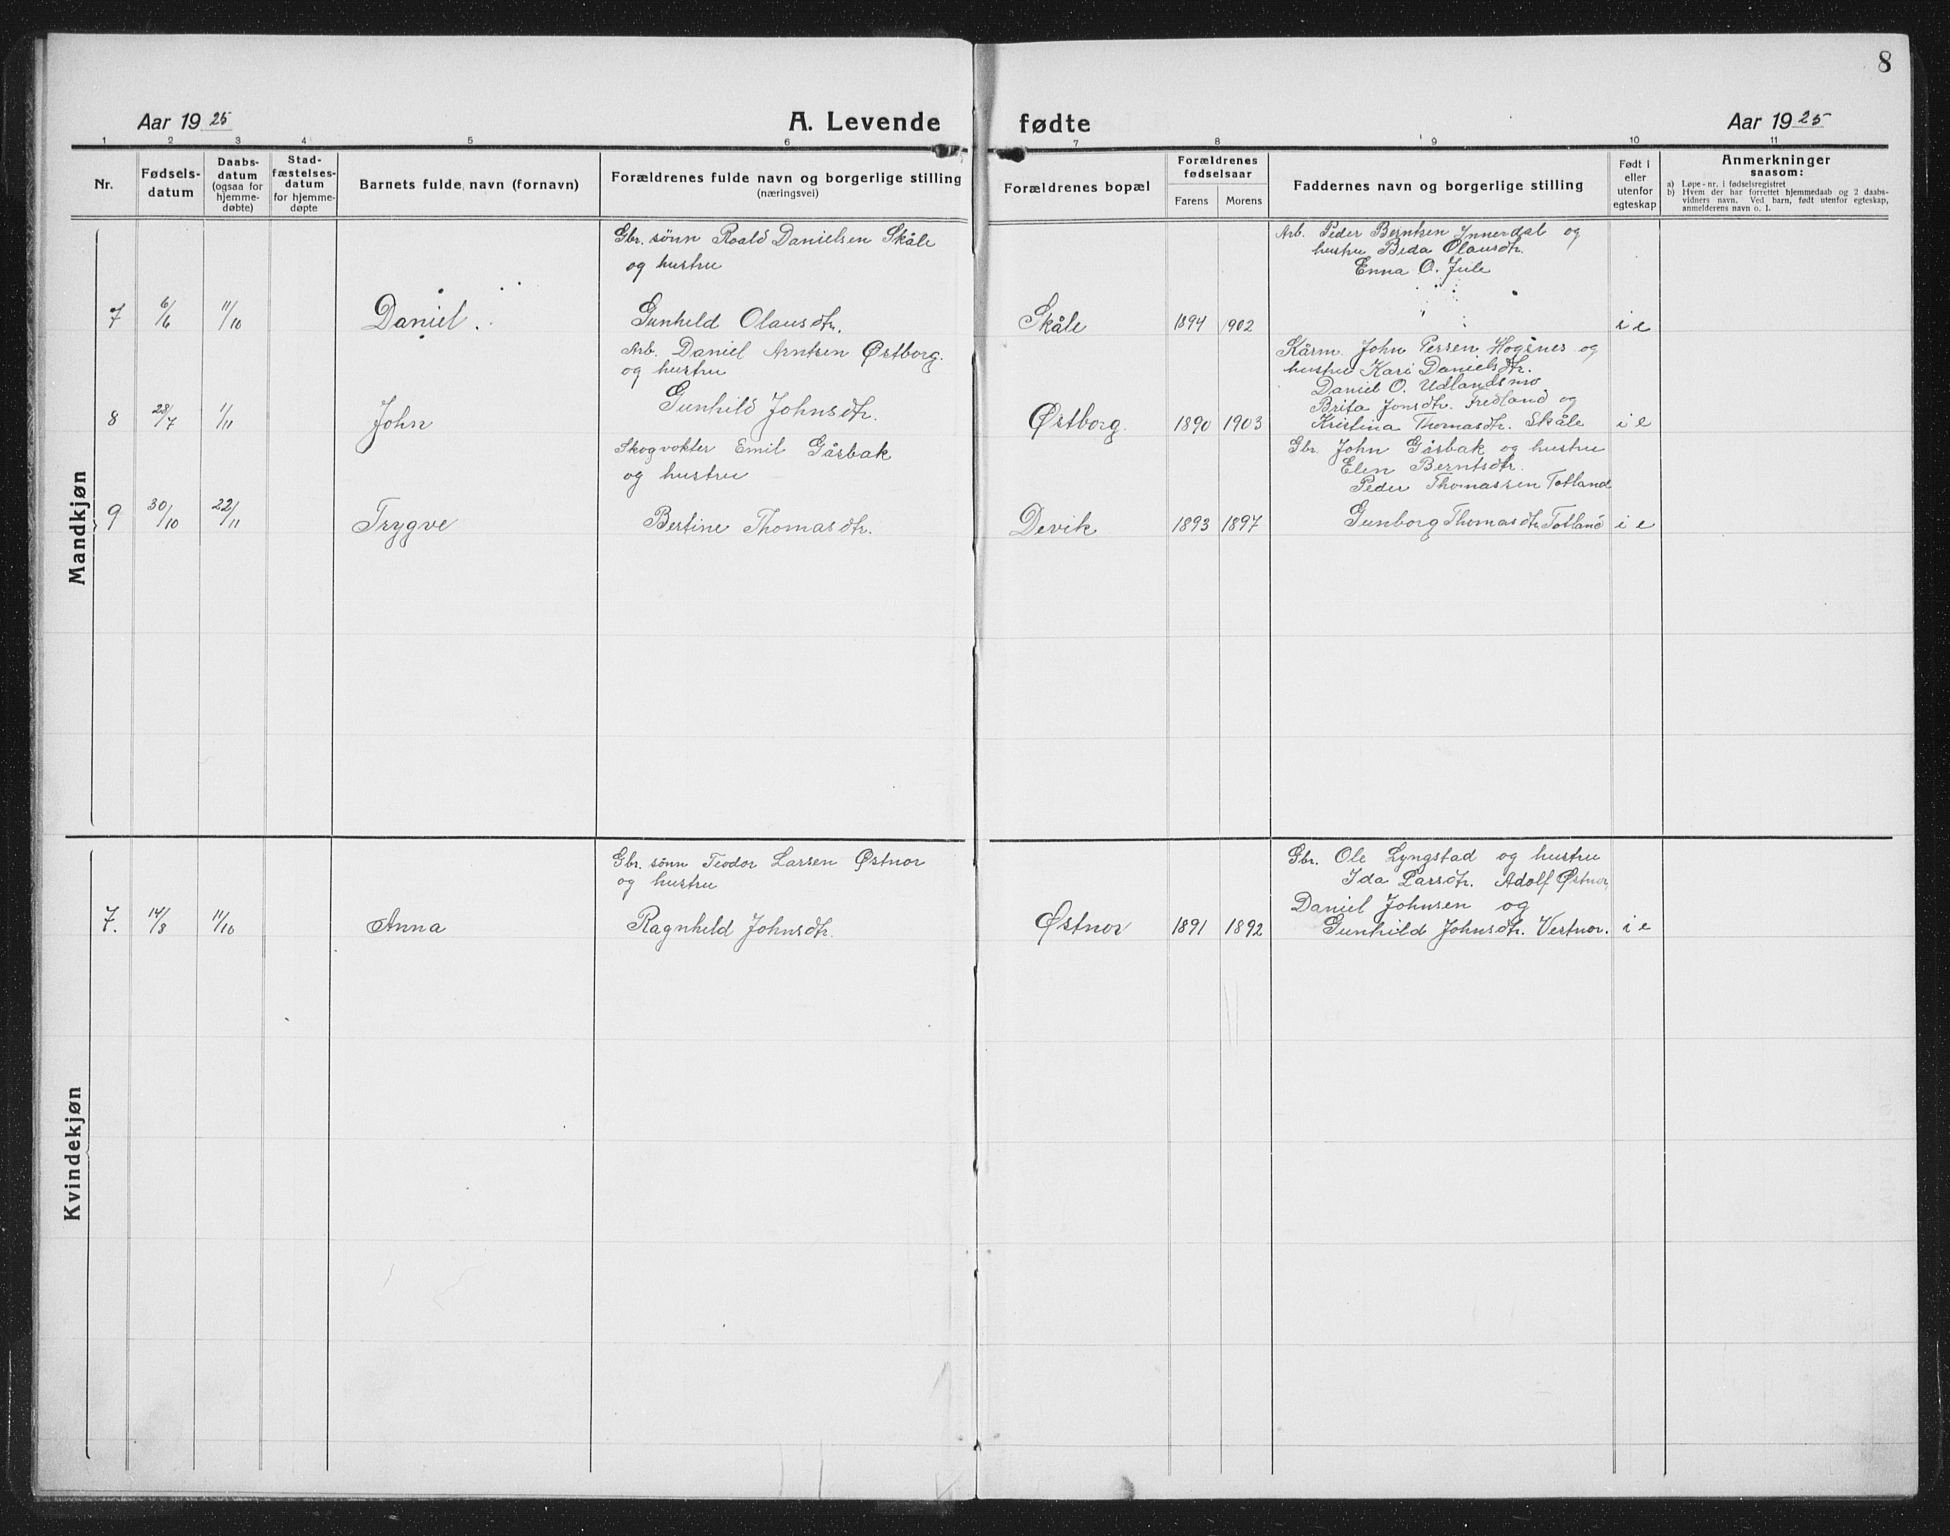 8
Aar 1925
A. Levende fødte
Aar 1925
1 2 3 4 5 6 7 8 9 10 11
Nr.
Fødsels-
datum
Daabs-
datum
(ogsaa for
hjemme-
døbte)
Stad-
fæstelses-
datum
for hjemme-
døpte
Barnets fulde navn (fornavn)
Forældrenes fulde navn og borgerlige stilling
(næringsvei)
Forældrenes bopæl
Forældrenes
fødselsaar
Farens Morens
Faddernes navn og borgerlige stilling
Født i
eller
utenfor
egteskap
Anmerkninger
saasom:
a) Løpe-nr. i fødselsregistret
b) Hvem der har forrettet hjemmedaab og 2 daabs-
vidners navn. Ved barn, født utenfor egteskap,
anmelderens navn o. l.
Mandkjøn
7 6/6 11/10 Daniel.
Gbr. sønn Roald Danielsen Skåle
og hustru
Gunhild Olausdtr.
Skåle 1894 1902
Arb. Peder Berntsen Innerdal og
hustru Beda Olausdtr.
Enna O. Jule
i e
8 28/7 1/11 John
Arb. Daniel Arntsen Østborg.
og hustru
Gunhild Johnsdtr.
Østborg. 1890 1903
Kårm. John Persen Hognes og
hustru Kari Danielsdtr.
Daniel O. Udlandsmo
Brita Jonsdtr. Fredland og
Kristina Thomasdtr. Skåle
i e
9 30/10 22/11 Trygve
Skogvokter Emil Gåsbak
og hustru
Bertine Thomasdtr.
Devik 1893 1897
Gbr. John Gåsbak og hustru
Elen Berntsdtr.
Peder Thomassen Totland
Gunborg Thomasdtr. Totland
i e
Kvindekjøn
7. 14/8 11/10 Anna
Gbr. sønn Teodor Larsen Østnor
og hustru
Ragnhild Johnsdtr.
Østnor 1891 1892
Gbr. Ole Lyngstad og hustru
Ida Larsdtr. Adolf Østnor
Daniel Johnsen og
Gunhild Johnsdtr. Vestnor.
i e